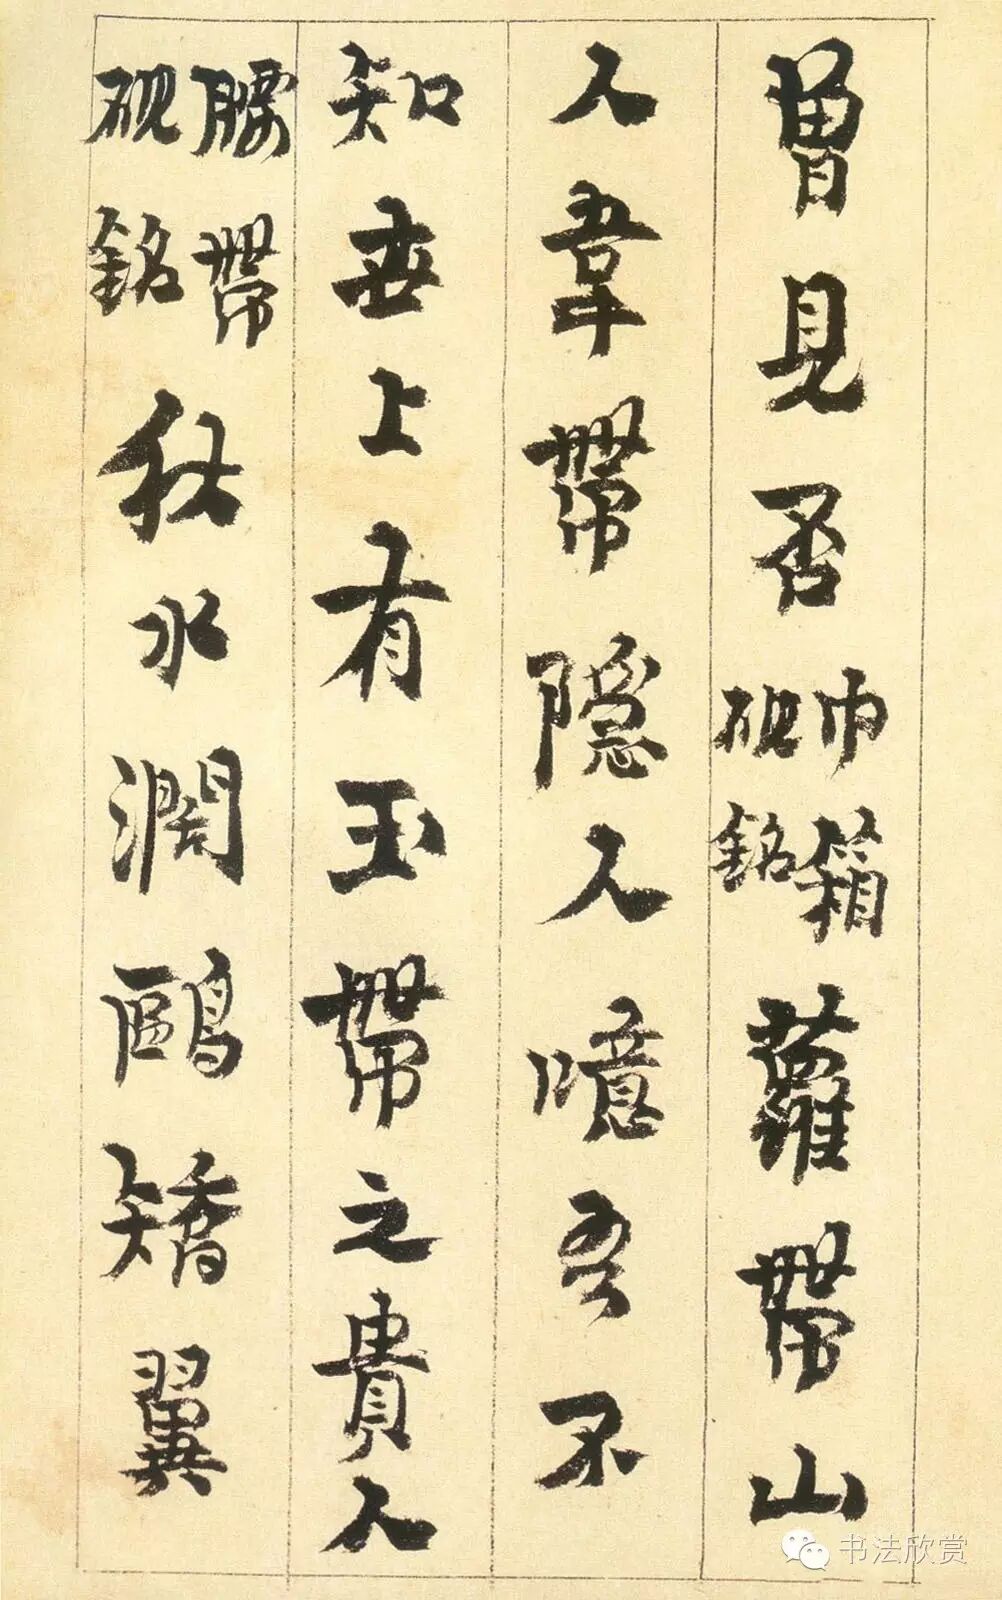 曾見否巾箱硯銘蘿帶山
人韋帶隱人噫吾不
知世上有玉帶之貴人
腰帶硯銘秋水潤鷗矯翼
书法欣赏